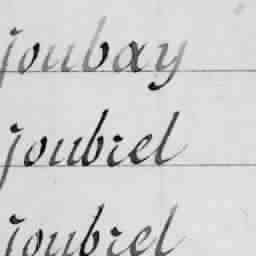 joubay
joubrel
joubrel